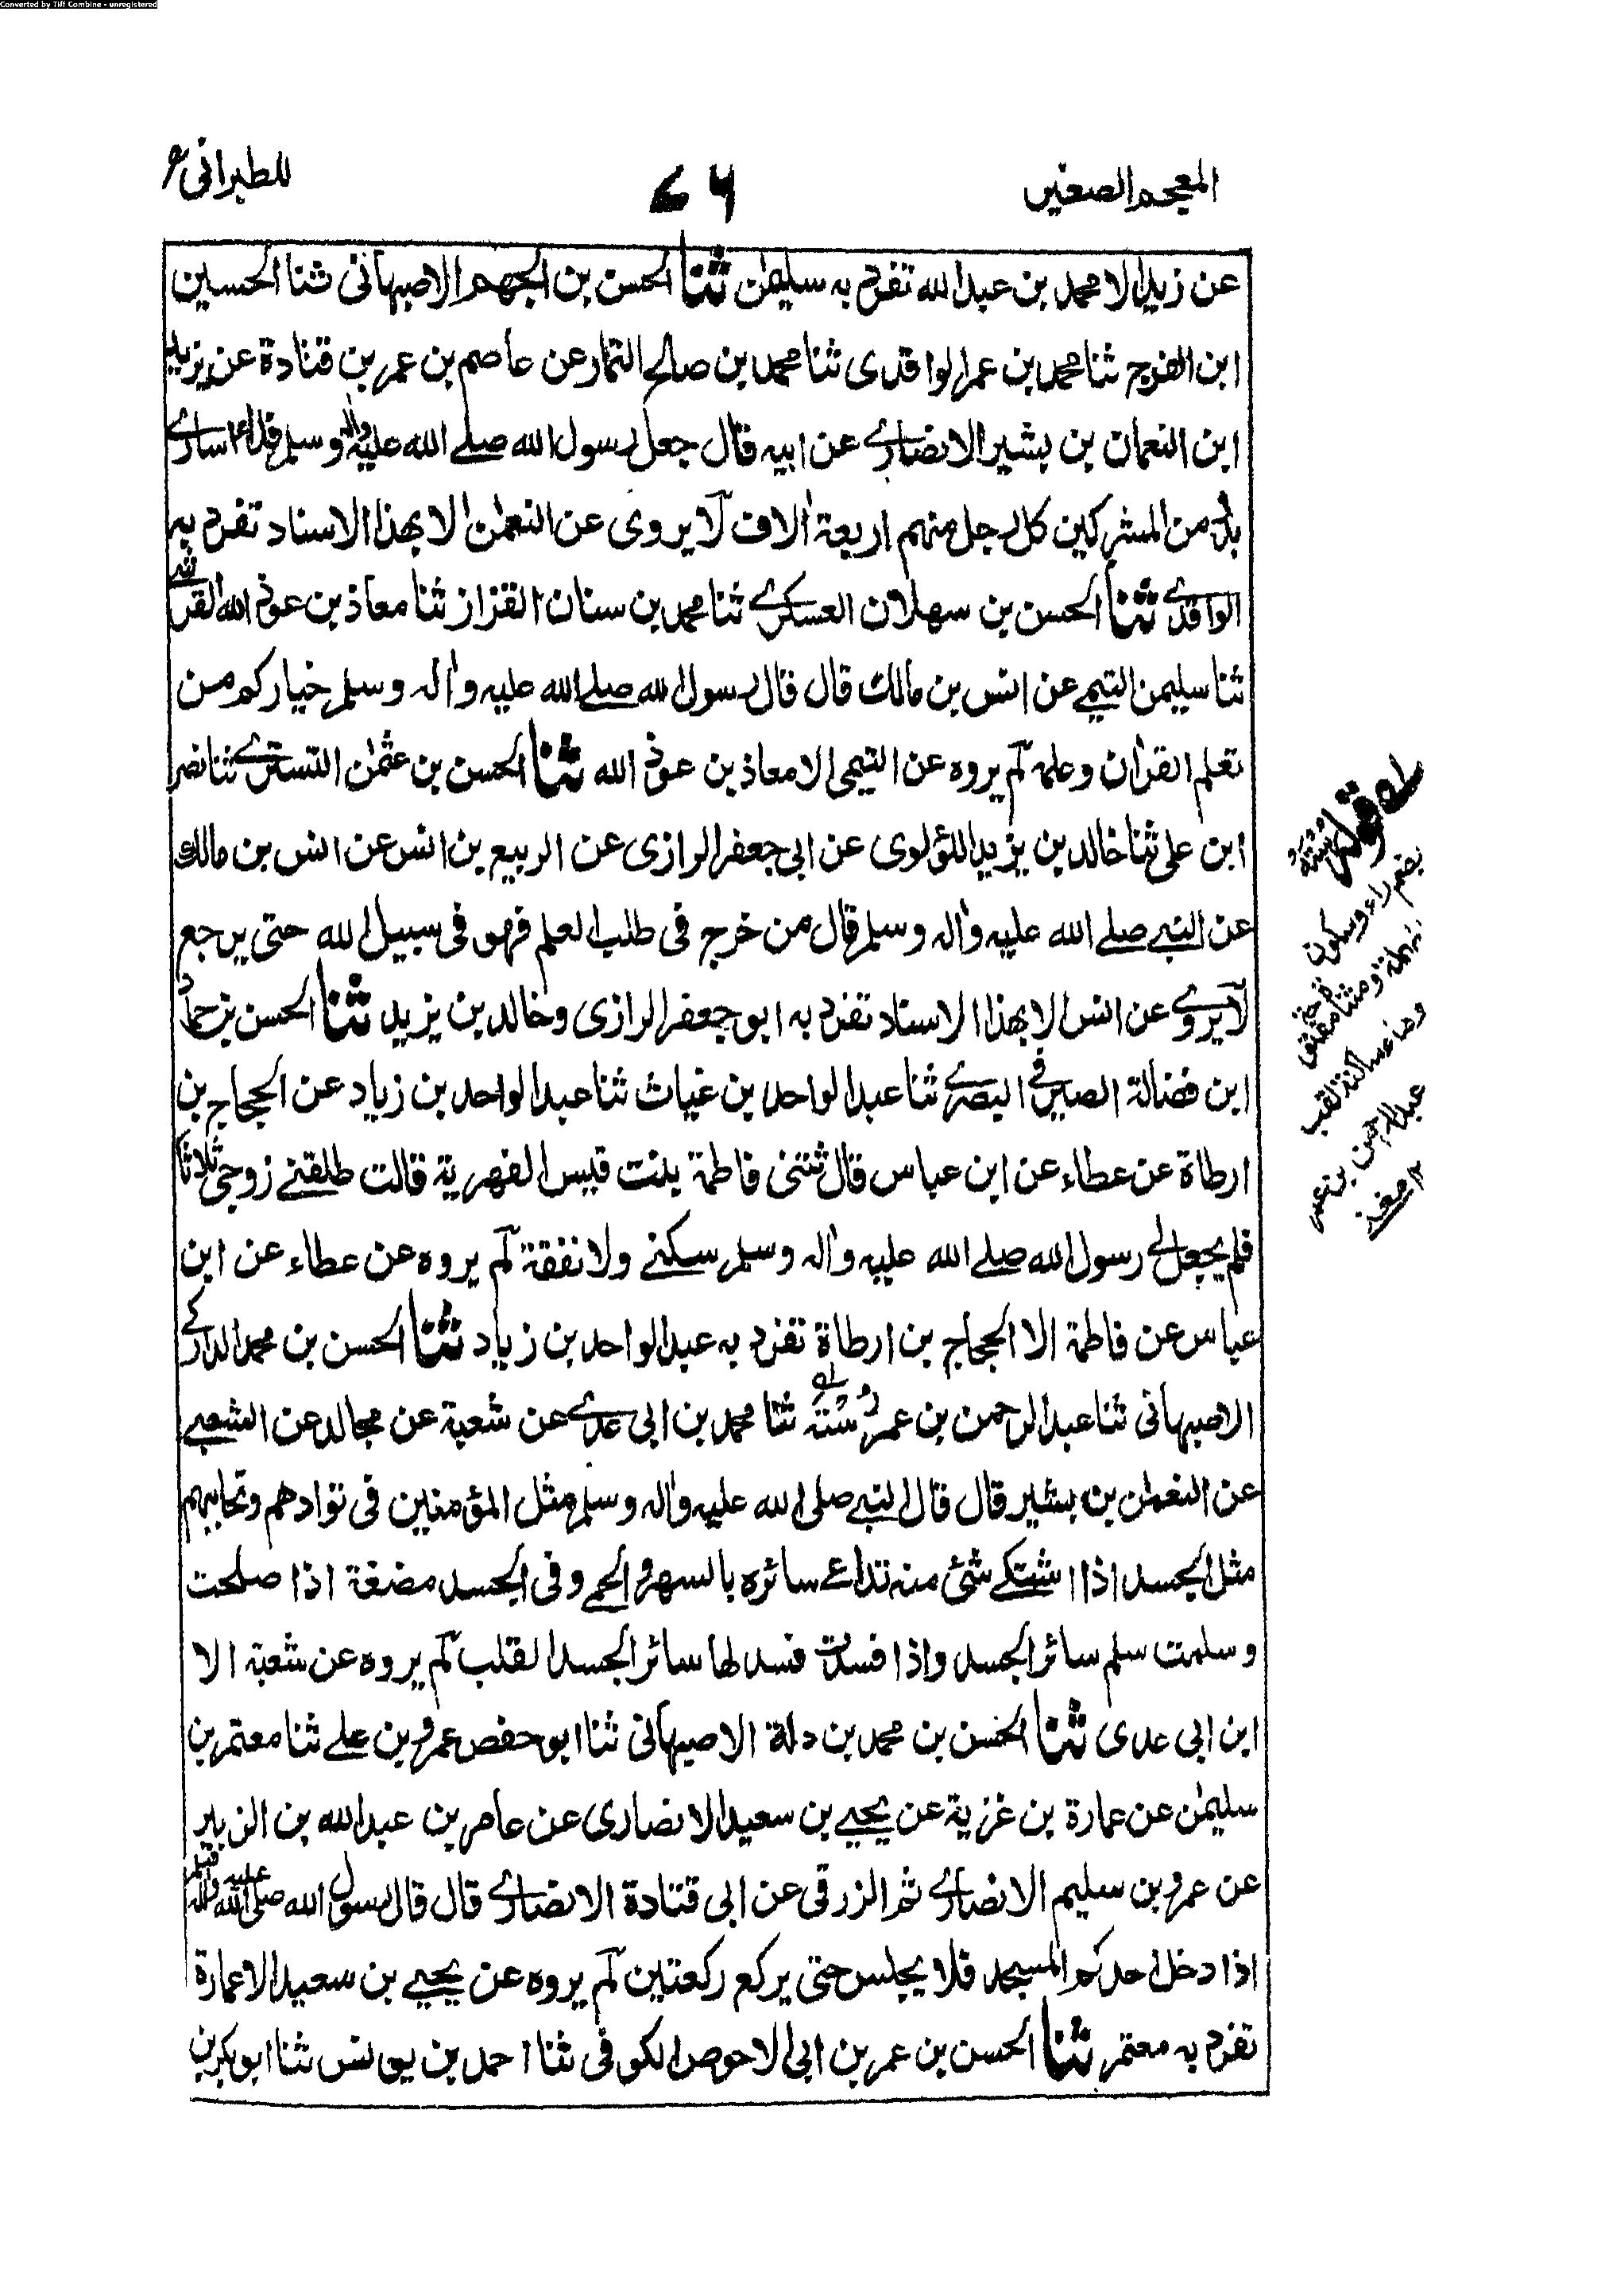 Converted by Tiff Combine - unregistered
المعجم الصغير
٧٦
للطبرانی
عن زيد الا محمد بن عبد الله تفرد به سليمٰن ثنا الحسن بن الجهم الاصبهانی ثنا الحسين
ابن الفرج ثنا محمد بن عمر الواقدی ثنا محمد بن صالح التمار عن عاصم بن عمر بن قتادة عن يزيد
ابن النعمان بن بشير الانصاری عن ابيه قال جعل رسول الله صلى الله عليه واٰله وسلم فداء اسارى
بدر من المشركين كل رجل منهم اربعة اٰلاف لا يروى عن النعمٰن الا بهذا الاسناد تفرد به
الواقدی ثنا الحسن بن سهلان العسكری ثنا محمد بن سنان القزاز ثنا معاذ بن عوذ الله القرشی
ثنا سليمن التيمی عن انس بن مالك قال قال رسول الله صلى الله عليه واٰله وسلم خياركم من
تعلم القراٰن وعلمه لم يروه عن التيمی الا معاذ بن عوذ الله ثنا الحسن بن عثمٰن التستری ثنا نصر
ابن علی ثنا خالد بن يزيد اللؤلوی عن ابی جعفر الرازی عن الربيع بن انس عن انس بن مالك
عن النبی صلى الله عليه واٰله وسلم قال من خرج فی طلب العلم فهو فی سبيل الله حتى يرجع
لا يروى عن انس الا بهذا الاسناد تفرد به ابو جعفر الرازی وخالد بن يزيد ثنا الحسن بن حماد
ابن فضالة الصيرفی البصری ثنا عبد الواحد بن غياث ثنا عبد الواحد بن زياد عن الحجاج بن
ارطاة عن عطاء عن ابن عباس قال ثنتنی فاطمة بنت قيس الفهرية قالت طلقنی زوجی ثلاثا
فلم يجعل لی رسول الله صلى الله عليه واٰله وسلم سكنى ولا نفقة لم يروه عن عطاء عن ابن
عباس عن فاطمة الا الحجاج بن ارطاة تفرد به عبد الواحد بن زياد ثنا الحسن بن محمد الدارکی
الاصبهانی ثنا عبد الرحمن بن عمر رُسْتَه ثنا محمد بن ابی عدی عن شعبة عن مجالد عن الشعبی
عن النعمٰن بن بشير قال قال النبی صلى الله عليه واٰله وسلم مثل المؤمنين فی توادهم وتحابهم
مثل الجسد اذا اشتكى شئ منه تداعى سائره بالسهر والحمى وفی الجسد مضغة اذا صلحت
وسلمت سلم سائر الجسد واذا فسدت فسد لها سائر الجسد القلب لم يروه عن شعبة الا
ابن ابی عدی ثنا الحسن بن محمد بن دلة الاصبهانی ثنا ابو حفص عمرو بن علی ثنا معتمر بن
سليمٰن عن عمارة بن غزية عن يحيى بن سعيد الانصاری عن عامر بن عبد الله بن الزبير
عن عمرو بن سليم الانصاری ثم الزرقی عن ابی قتادة الانصاری قال قال رسول الله صلى الله عليه واٰله وسلم
اذا دخل احدكم المسجد فلا يجلس حتى يركع ركعتين لم يروه عن يحيى بن سعيد الا عمارة
تفرد به معتمر ثنا الحسن بن عمر بن ابی الاحوص الكوفی ثنا احمد بن يونس ثنا ابو بكر بن
له قوله رسته
بضم راء وسكون
مهملة ومثناة فوق
وهاء ساكنة لقب
عبد الرحمن بن عمر
١٢ مغنی